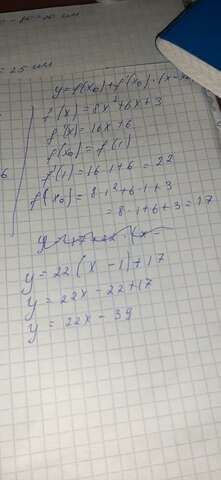 y=f(x₀)+f'(x₀)·(x-x₀)
f(x)=8x²+6x+3
f'(x)=16x+6
f(x₀)=f(1)
f'(1)=16·1+6=22
f(x₀)=8·1²+6·1+3
=8·1+6+3=17
y=22(x-1)+17
y=22x-22+17
y=22x-39